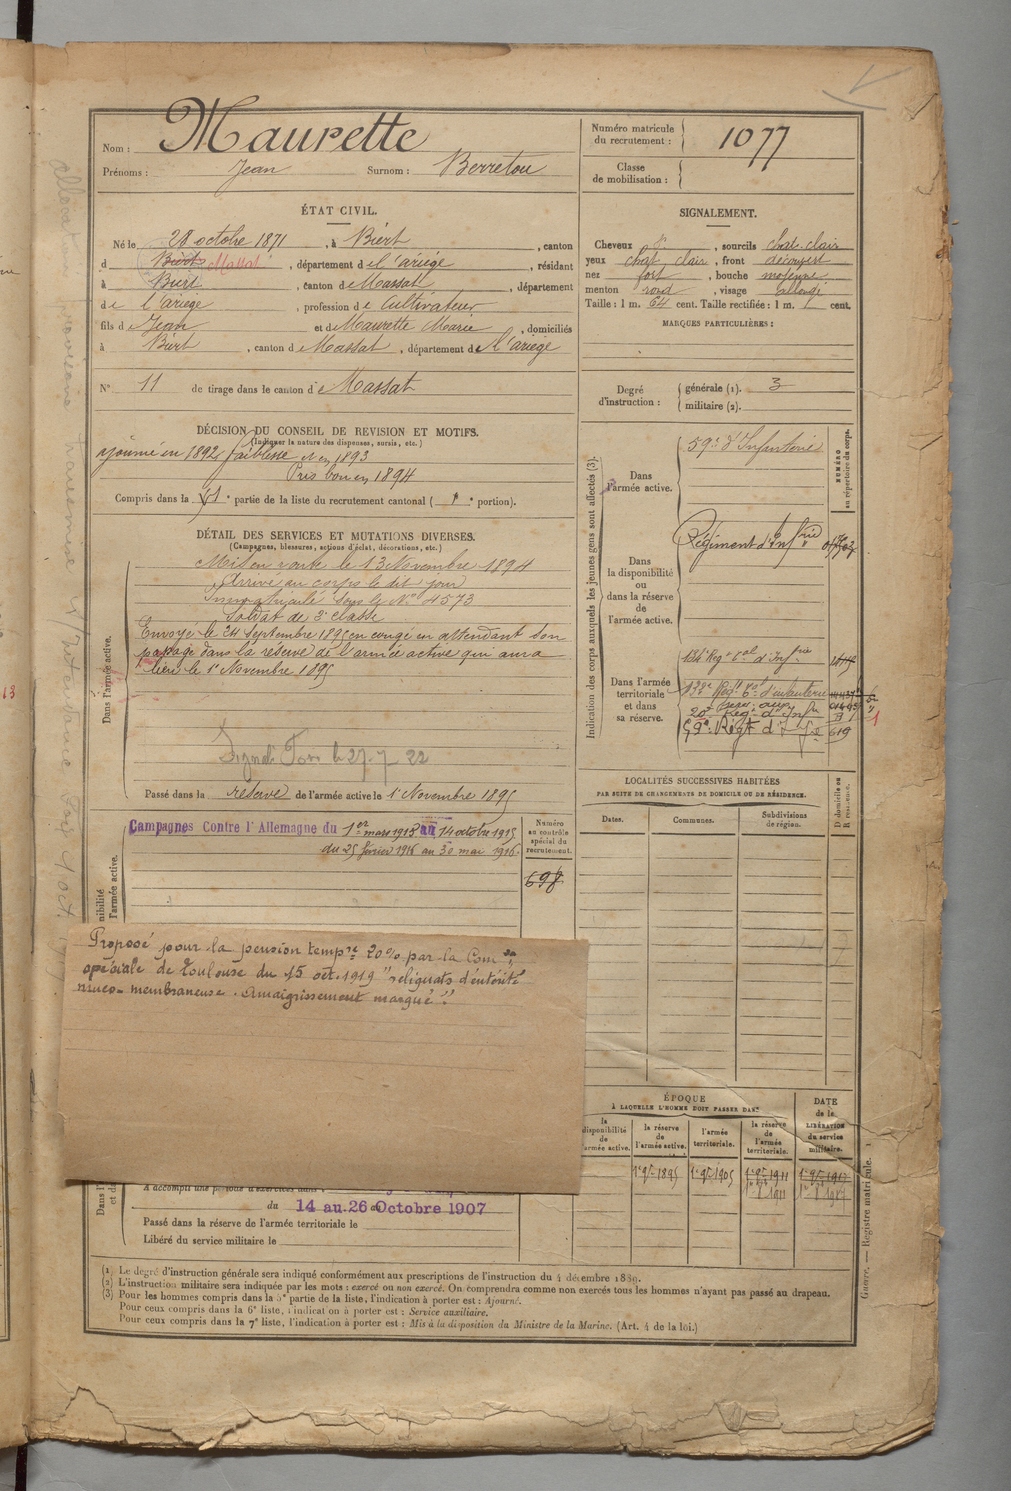 Nom : Maurette
Prénoms : Jean Surnom : Berretou
Numéro matricule du recrutement : 1077
Classe de mobilisation :
ÉTAT CIVIL.
Né le 28 octobre 1871, à Biert, canton
d Biert Massat, département de l'ariége, résidant
à Biert, canton de Massat, département
de l'ariege, profession de Cultivateur
fils de Jean et de Maurette Marie, domiciliés
à Biert, canton de Massat, département de l'ariège
N° 11 de tirage dans le canton de Massat
SIGNALEMENT.
Cheveux , sourcils chat. clair
yeux chat clair, front découvert
nez fort, bouche moyenne
menton rond, visage allongé
Taille : 1 m. 64 cent. Taille rectifiée : 1 m. cent.
MARQUES PARTICULIÈRES :
Degré d'instruction : générale (1). 3
militaire (2).
DÉCISION DU CONSEIL DE REVISION ET MOTIFS.
(Indiquer la nature des dispenses, sursis, etc.)
ajourné en 1892 faiblesse et en 1893
Pris bon en 1894
Compris dans la 1e partie de la liste du recrutement cantonal ( 1e portion).
DÉTAIL DES SERVICES ET MUTATIONS DIVERSES.
(Campagnes, blessures, actions d'éclat, décorations, etc.)
Dans l'armée active.
Mis en route le 13 Novembre 1894
Arrivé au corps le dit jour
Immatriculé sous le N° 4573
Soldat de 2e classe
Envoyé le 24 Septembre 1895 en congé en attendant son
passage dans la réserve de l'armée active qui aura
lieu le 1e Novembre 1895
27-7 22
Passé dans la réserve de l'armée active le 1e Novembre 1895
Campagnes Contre l'Allemagne du 1er mars 1915 au 14 octobre 1915
du 25 février 1916 au 30 mai 1916.
Numéro au contrôle spécial du recrutement.
698
Proposé pour la pension tempre 20% par la Comon
spéciale de Toulouse du 15 oct. 1919 "reliquats d'entérite
muco-membraneuse. Amaigrissement marqué".
A accompli une période d'exercices dans
du 14 au 26 Octobre 1907
Passé dans la réserve de l'armée territoriale le
Libéré du service militaire le
Indication des corps auxquels les jeunes gens sont affectés (3).
Dans l'armée active.
59e d'Infanterie
NUMÉRO au répertoire du corps.
Dans la disponibilité ou dans la réserve de l'armée active.
Régiment d'Infrie
Dans l'armée territoriale et dans sa réserve.
134e Regt Tal d'Infrie
133e Regt Tal d'infanterie
59e Régt d'Infie 619
LOCALITÉS SUCCESSIVES HABITÉES
PAR SUITE DE CHANGEMENTS DE DOMICILE OU DE RÉSIDENCE.
Dates. Communes. Subdivisions de région. D domicile ou R résidence.
ÉPOQUE
À LAQUELLE L'HOMME DOIT PASSER DANS
la disponibilité de l'armée active. la réserve de l'armée active. l'armée territoriale. la réserve de l'armée territoriale.
DATE de la LIBÉRATION du service militaire.
1e 9bre 1895 1e 9bre 1905 1e 9bre 1911 1e 9bre 1917
(1) Le degré d'instruction générale sera indiqué conformément aux prescriptions de l'instruction du 4 décembre 1889.
(2) L'instruction militaire sera indiquée par les mots : exercé ou non exercé. On comprendra comme non exercés tous les hommes n'ayant pas passé au drapeau.
(3) Pour les hommes compris dans la 5e partie de la liste, l'indication à porter est : Ajourné.
Pour ceux compris dans la 6e liste, l'indication à porter est : Service auxiliaire.
Pour ceux compris dans la 7e liste, l'indication à porter est : Mis à la disposition du Ministre de la Marine. (Art. 4 de la loi.)
Guerre. — Registre matricule. 1